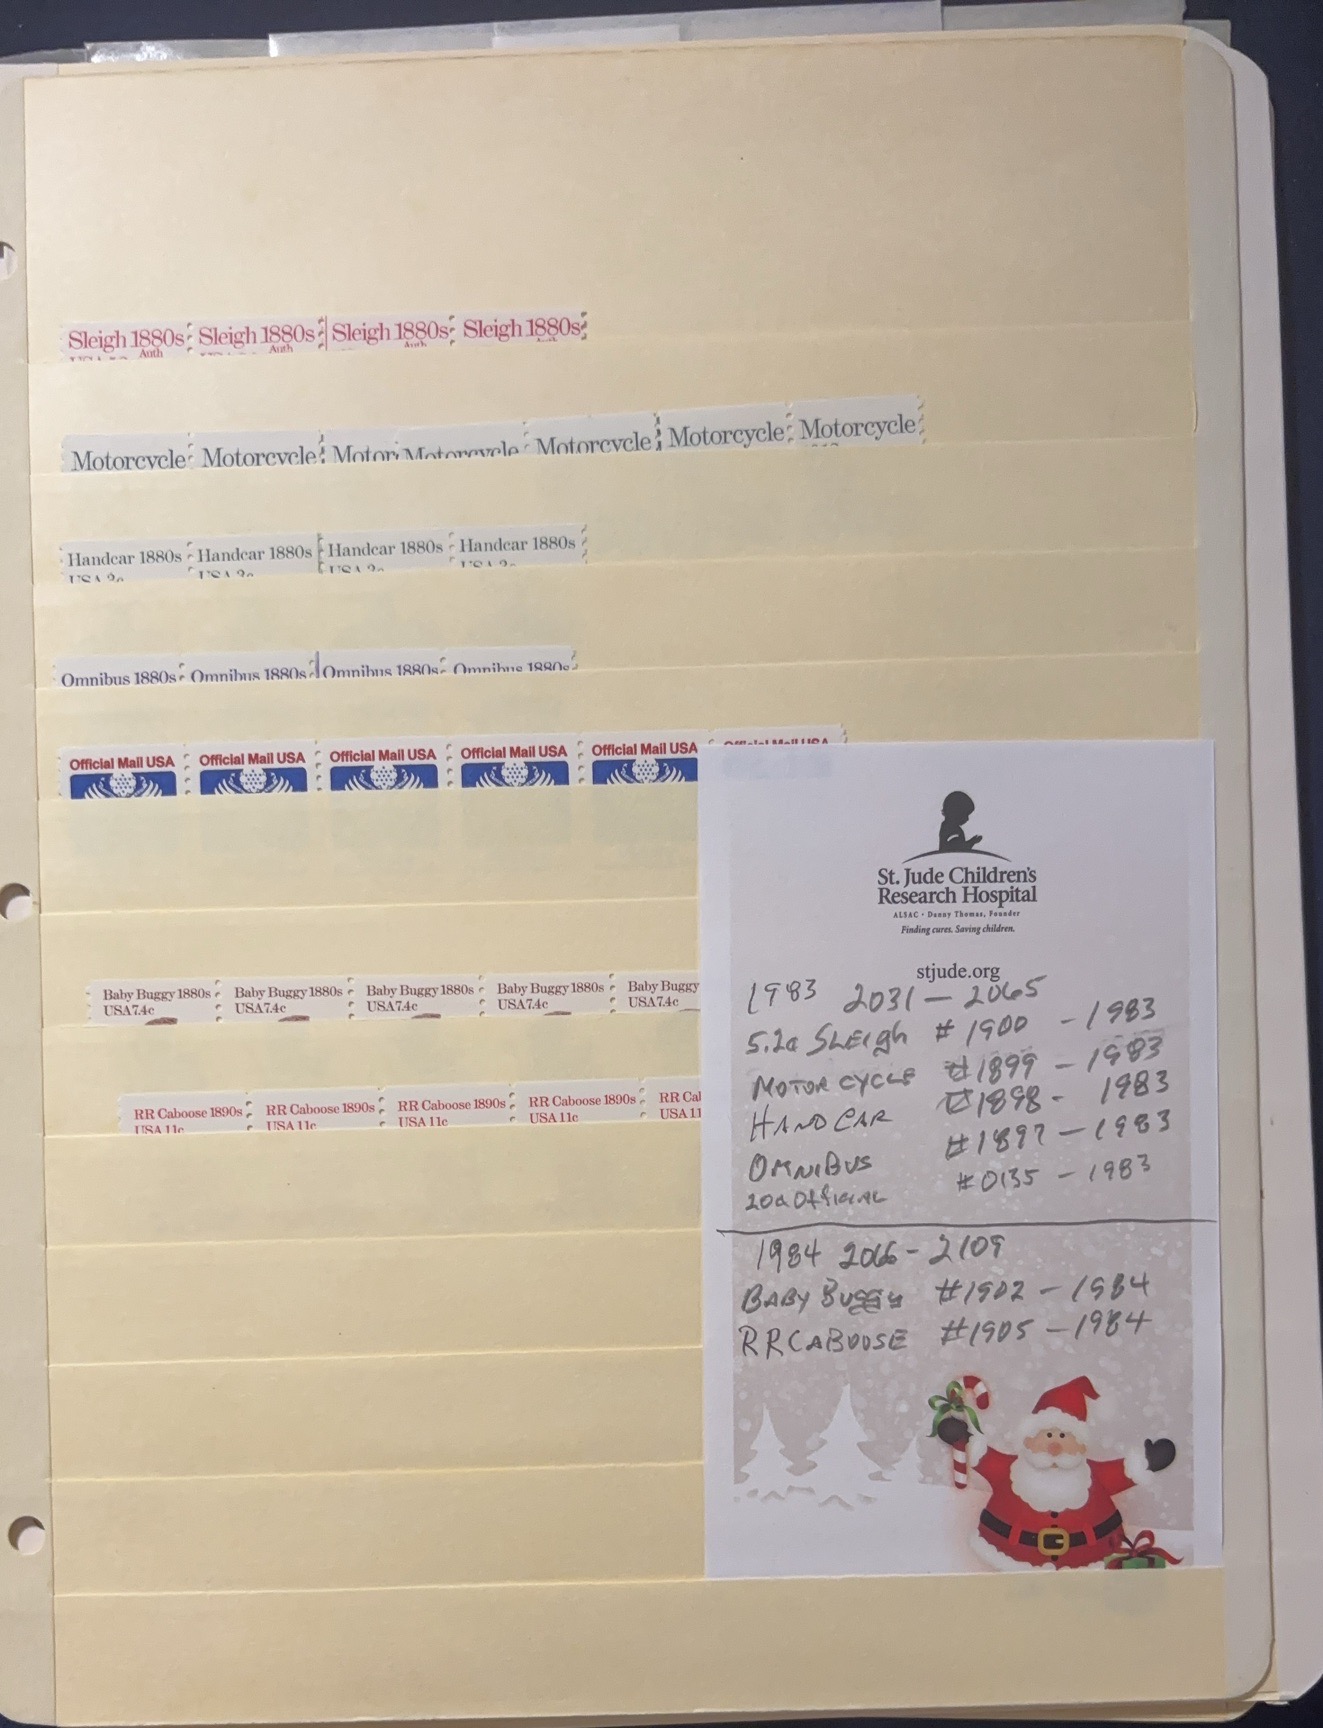 Sleigh 1880s Sleigh 1880s Sleigh 1880s Sleigh 1880s
Auth Auth Auth
Motorcycle Motorcycle Motor Motorcycle Motorcycle Motorcycle Motorcycle
Handcar 1880s Handcar 1880s Handcar 1880s Handcar 1880s
Omnibus 1880s Omnibus 1880s Omnibus 1880s Omnibus 1880s
Official Mail USA Official Mail USA Official Mail USA Official Mail USA Official Mail USA Official Mail USA
Baby Buggy 1880s Baby Buggy 1880s Baby Buggy 1880s Baby Buggy 1880s Baby Buggy
USA 7.4c USA 7.4c USA 7.4c USA 7.4c USA 7.4c
RR Caboose 1890s RR Caboose 1890s RR Caboose 1890s RR Caboose 1890s RR Ca
USA 11c USA 11c USA 11c USA 11c USA 11
St. Jude Children's
Research Hospital
ALSAC • Danny Thomas, Founder
Finding cures. Saving children.
stjude.org
1983 2031 - 2065
5.2¢ SLEIGH # 1900 - 1983
MOTORCYCLE #1899 - 1983
HANDCAR #1898 - 1983
OMNIBUS #1897 - 1983
20¢ OFFICIAL #0135 - 1983
1984 2066 - 2109
BABY BUGGY #1902 - 1984
RR CABOOSE #1905 - 1984